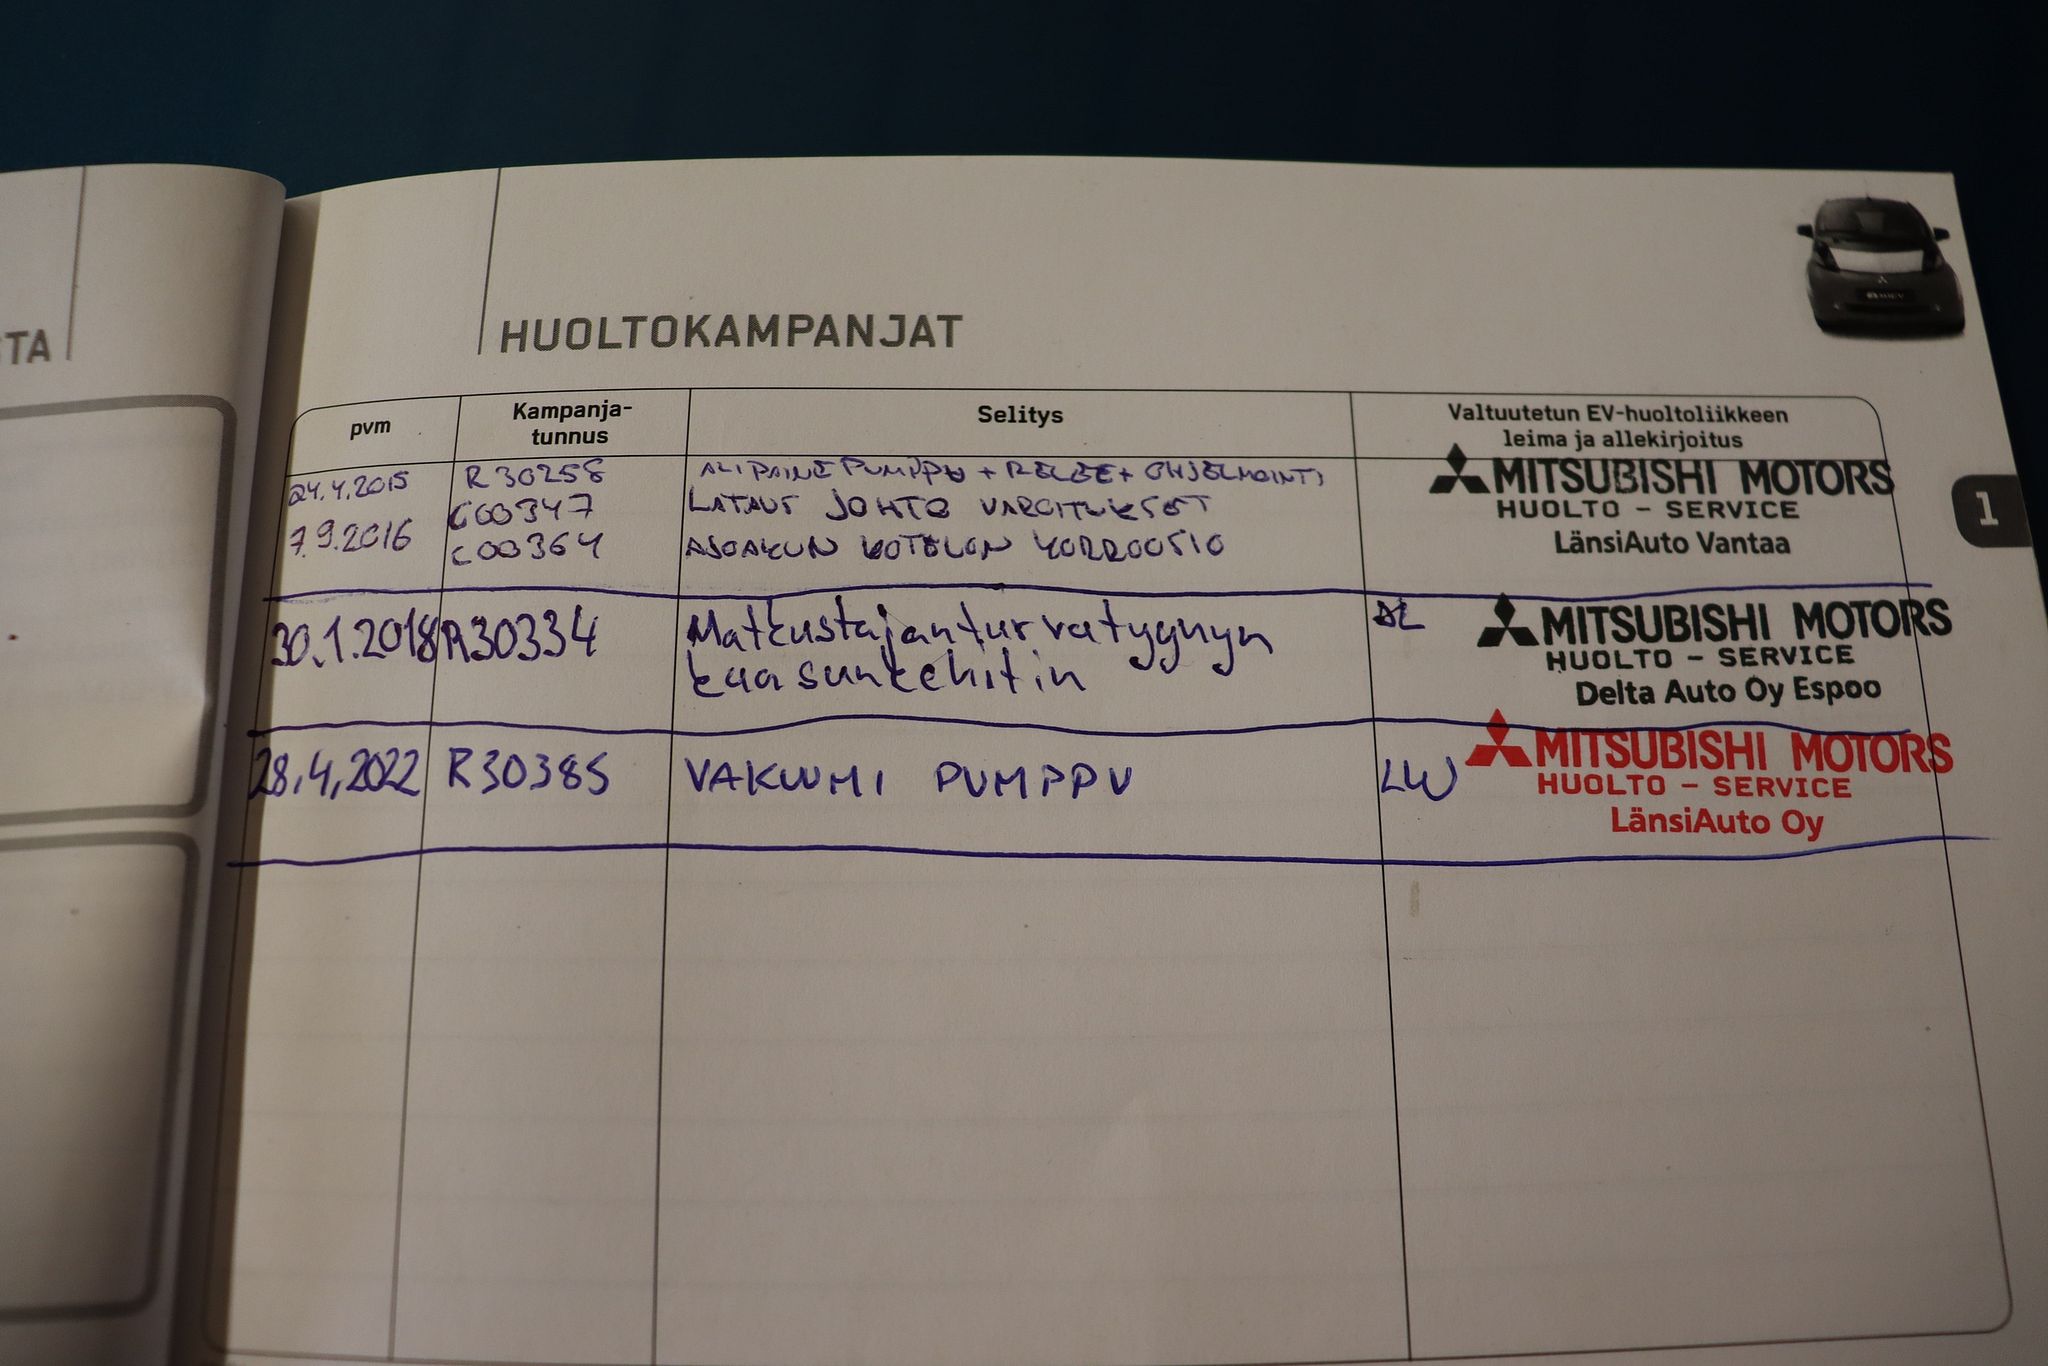 STA
HUOLTOKAMPANJAT
pvm
Kampanja-
tunnus
Selitys
Valtuutetun EV-huoltoliikkeen
leima ja allekirjoitus
24.4.2015 R30258 ALIPAINEPUMPPU + RELEE + OHJELMOINTI
C00347 LATAUS JOHTO VAROITUKSET
7.9.2016 C00364 AJOAKUN KOTELON KORROOSIO
MITSUBISHI MOTORS
HUOLTO - SERVICE
LänsiAuto Vantaa
1
30.1.2018 R30334 Matkustajanturvatyynyn
kaasunkehitin
MITSUBISHI MOTORS
HUOLTO - SERVICE
Delta Auto Oy Espoo
28.4.2022 R30385 VAKUUMI PUMPPU LW
MITSUBISHI MOTORS
HUOLTO - SERVICE
LänsiAuto Oy